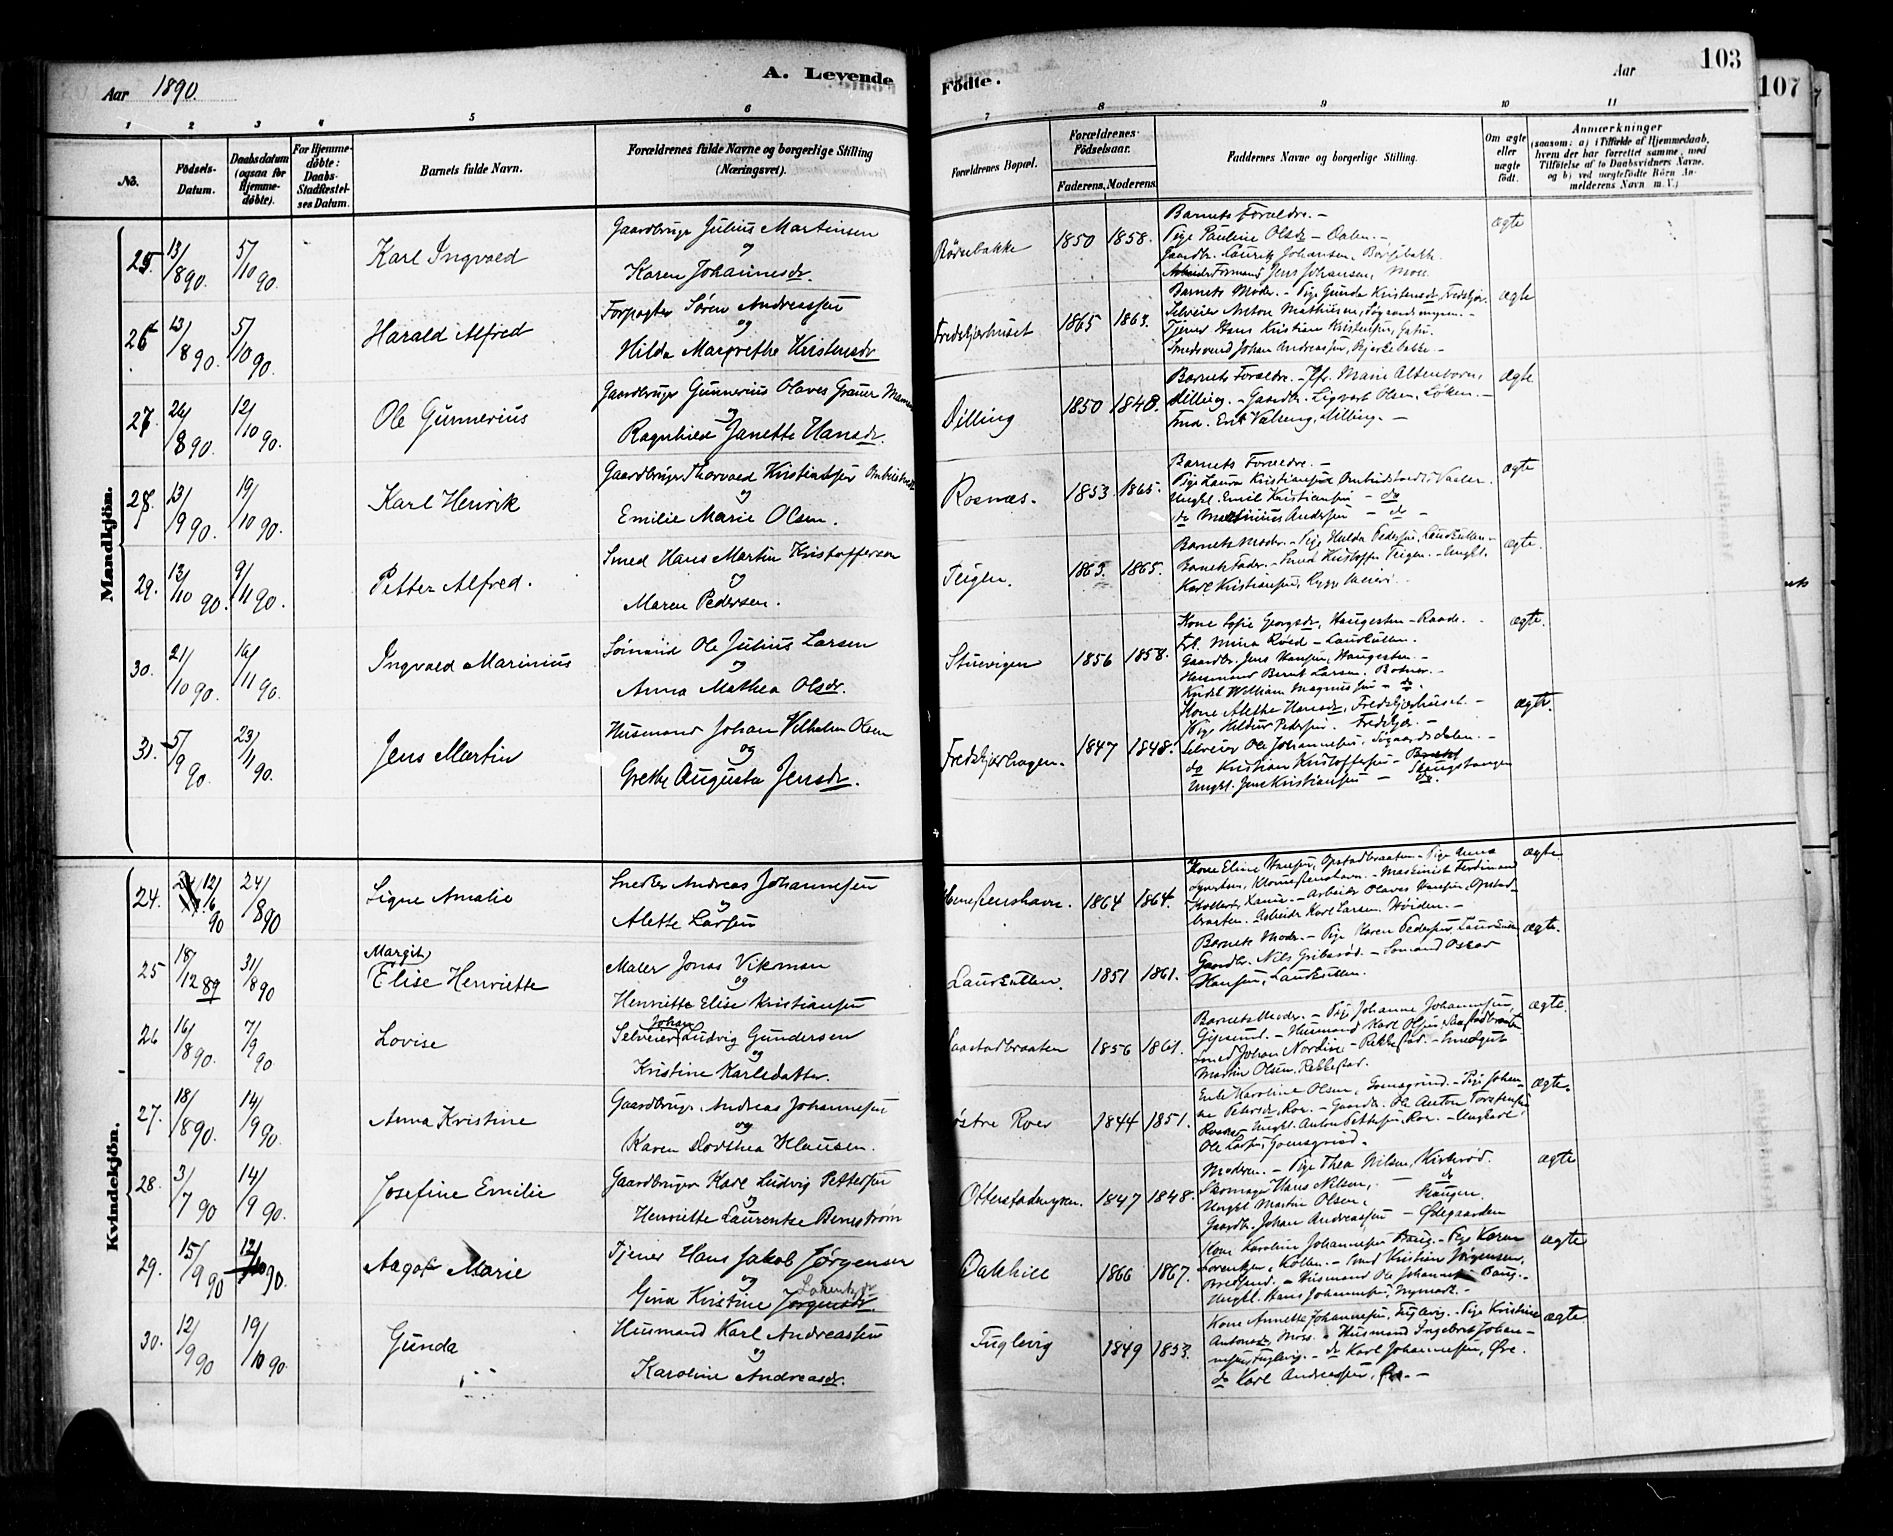 Aar 1890.
A. Levende
Födte.
Aar
103
107
1 2 3 4 5 6 7 8 9 10 11
No.
Födsels-Datum.
Daabsdatum (ogsaa for Hjemme-døbte).
For Hjemme-døbte: Daabs-Stadfæstel-ses Datum.
Barnets fulde Navn.
Forældrenes fulde Navne og borgerlige Stilling (Næringsvei).
Forældrenes Bopæl.
Forældrenes Födselsaar.
Faderens. Moderens.
Faddernes Navne og borgerlige Stilling.
Om ægte eller uægte födt.
Anmærkninger
(saasom: a) i Tilfælde af Hjemmedaab, hvem der har forrettet samme, med Tilföielse af to Daabsvidners Navne, og b) ved uægtefödte Börn An-melderens Navn m. V.)
Mandkjön.
25. 13/8 90. 5/10 90. Karl Ingvald
Gaardbruger Julius Martinsen
og
Karen Johannesdr.
1850 1858.
Barnets Forældre. –
Pige Pauline Olsdr – Dalen. –
Gaardbr. Laurits Johansen,
Formand Jens Johansen, Moss
ægte
26 13/8 90. 5/10 90. Harald Alfred
Forpagter Søren Andreassen
og
Hilda Margrethe Kristensdr
Fredskjærhuset 1865 1863.
Barnets Moder. – Pige Gunda Kristensdr,
Selveier Anton Mathiesen,
Tjener Hans Kristian Kristensen,
Smedsvend Johan Andreassen, Bjerkebakke –
ægte
27 24/8 90. 12/10 90. Ole Gunnerius
Gaardbruger Gunnerius Olaves Grauer
og
Ragnhild Janette Hansdr.
Dilling 1850 1848.
Barnets Forældre. – Marie Altenborn,
Dilling. – Gaardbr. Sigvart Olsen, Løken. –
Dilling. –
ægte
28. 13/9 90. 19/10 90. Karl Henrik
Gaardbruger Thorvald Kristiansen
og
Emilie Marie Olsen.
Rosnæs. 1853 1865.
Barnets Forældre. –
Pige Laura Kristiansen
Ungkl. Emil Kristiansen – do
do Martinius Andersen – do –
ægte
29. 13/10 90. 9/11 90. Petter Alfred.
Smed Hans Martin Kristoffersen
og
Maren Pedersen.
Teigen. 1863. 1865.
Barnets Moder – Pige Hulda Pedersen, Laurkullen –
Barnets Fader. – Smed Kristoffer Teigen. – Ungkl.
Karl Kristiansen, Rygge
ægte.
30. 21/10 90. 16/11 90. Ingvald Marinius
Sömand Ole Julius Larsen
og
Anna Mathea Olsdr.
Stuevigen 1856 1858.
Kone Sofie Georgsdr, Haugesten – Raade.
Frk. Mina Röed – Laurkullen.
Gaardbr. Jens Hansen, Haugesten –
Husmand Bernt Larsen, Botner. –
William Magnussen – do.
ægte.
31. 5/9 90. 23/11 90. Jens Martin
Husmand Johan Vilhelm Olsen
og
Grethe Augusta Jensdr.
Fredskjærhagen. 1847 1848.
Kone Alethe Hansdr, Fredskjærhuset. –
Pige Pedersen. Fredskjær. –
Selveier Ole Johannesen, –
do Kristian Kristoffersen –
Ungkl. Jens Kristiansen – do.
ægte.
Kvindekjön.
24. 12/6 90 24/8 90 Signe Amalie
Snedker Andreas Johannesen
og
Alette Larsen
1864 1864.
Kone Eline Hansen, Opstadbraaten – Pige Anna
– Maskinist Ferdinand
– Arbeider Olaves Hansen, Opstad-
braaten. – Arbeider Karl Larsen,
ægte
25 18/12 89 31/8 90 Margit Elise Henriette
Maler Jonas Vikman
og
Henriette Elise Kristiansen
Laurkullen. 1851 1861.
Barnets Moder. – Pige Karen Pedersen, Laurkullen
Gaardbr. Nils Gribsrød. – Sömand Oskar
Hansen, Laurkullen.
ægte.
26 16/8 90. 7/9 90 Lovise
Selveier Johan Ludvig Gundersen
og
Kristine Karlsdatter.
1856 1861.
Barnets Moder. – Pige Johanne Johannesen,
Gipsund. – Husmand Karl Olsen,
Smed Johan Nordine – Rekkestad. – Smedgut
Martin Olsen, Rekkestad.
ægte.
27. 18/8 90. 14/9 90. Anna Kristine
Gaardbruger Andreas Johannesen
og
Karen Dorthea Klausen.
Østre Roer 1844 1851.
Enke Karoline Olsen, Gomsgrind. – Pige Johan-
ne Petersdr, Roer. – Gaardbr. Ole Anton Torstensen
– Ungkl. Anton Pettersen, Roer. – Ungkarl
Ole Larsen, Gomsgrind. –
ægte.
28. 3/7 90 14/9 90. Josefine Emilie
Gaardbruger Karl Ludvig Pettersen
og
Henriette Laurentse Bernström
1847 1848.
Moderen. – Pige Thea Nilsen, Kirkerød.
Skomager Hans Nilsen, – do
Ungkl Martin Olsen, Haugen.
Gaardbr. Johan Andreassen – Ødegaarden
ægte
29. 15/9 90 12/10 90. Aagot Marie
Tjener Hans Jakob Jørgensen
og
Gina Kristine Jörgensdr.
Oakhill 1866 1867.
Kone Karoline Johannesen Baug. – Pige Karen
Lorentzen, Kollen. – Smed Kristian Jörgensen,
– Husmand Ole Johannesen Baug. –
Ungkl. Hans Johannesen, Nymark. –
ægte
30. 12/9 90 19/10 90. Gunda
Husmand Karl Andreassen
og
Karoline Andreasdr.
Fuglevig 1849 1853.
Kone Annette Johannesen, Fuglevig. – Pige Kristine
Antonsdr, Moss. – Husmand Ingebret Johan-
nesen Fuglevig. – do Karl Johannesen, Øre.
do Karl Andreassen, Øre. –
ægte